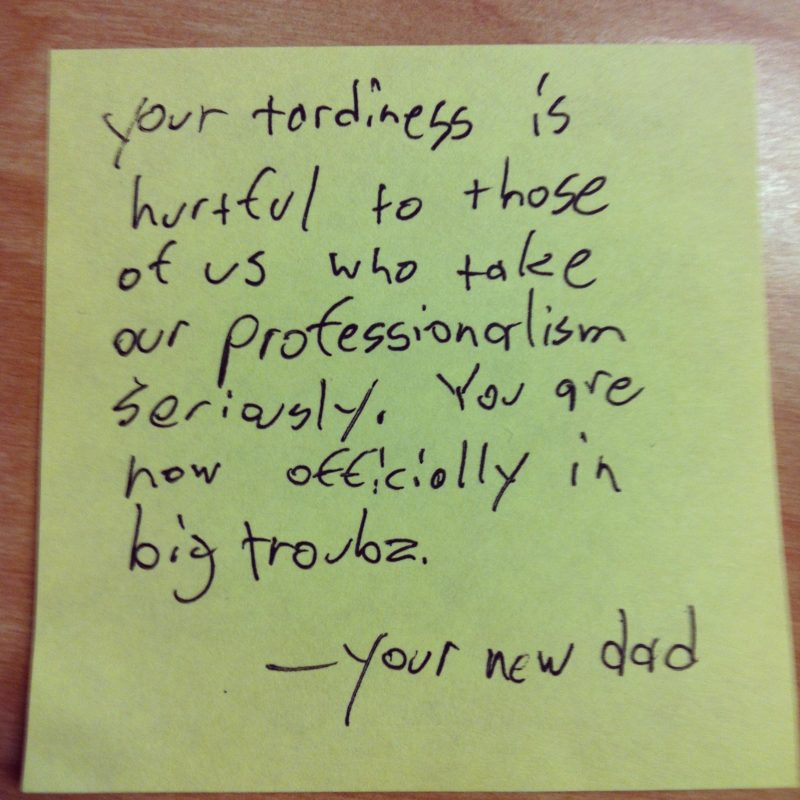 your tardiness is
hurtful to those
of us who take
our professionalism
seriously. You are
now officially in
big troubz.
—your new dad